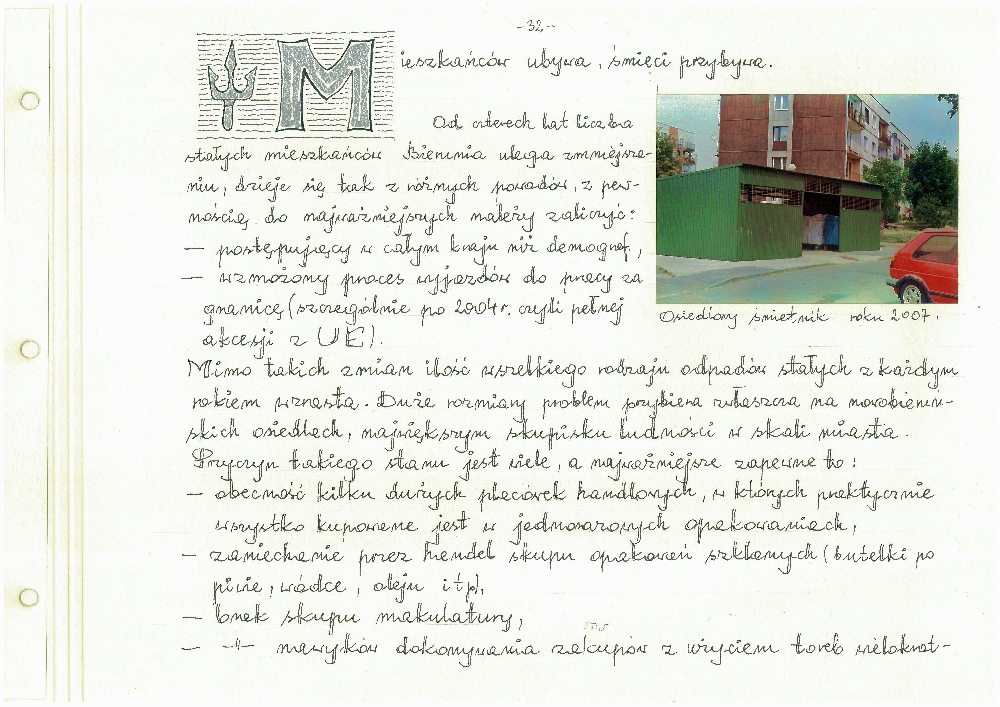 - 32 -
Mieszkańców ubywa, śmieci przybywa.
Od czterech lat liczba
stałych mieszkańców Bierunia ulega zmniejsze-
niu, dzieje się tak z różnych powodów, z pew-
nością do najważniejszych należy zaliczyć:
— postępujący w całym kraju niż demograf,
— wzmożony proces wyjazdów do pracy za
granicę (szczególnie po 2004 r. czyli pełnej
akcesji z UE).
Osiedlowy śmietnik roku 2007.
Mimo takich zmian ilość wszelkiego rodzaju odpadów stałych z każdym
rokiem wzrasta. Duże rozmiary problem przybiera zwłaszcza na nowobieruń-
skich osiedlach, największym skupisku ludności w skali miasta.
Przyczyn takiego stanu jest wiele, a najważniejsze zapewne to:
— obecność kilku dużych placówek handlowych, w których praktycznie
wszystko kupowane jest w jednorazowych opakowaniach,
— zaniechanie przez handel skupu opakowań szklanych (butelki po
piwie, wódce, oleju itp),
— brak skupu makulatury,
— -"- nawyków dokonywania zakupów z użyciem toreb wielokrot-